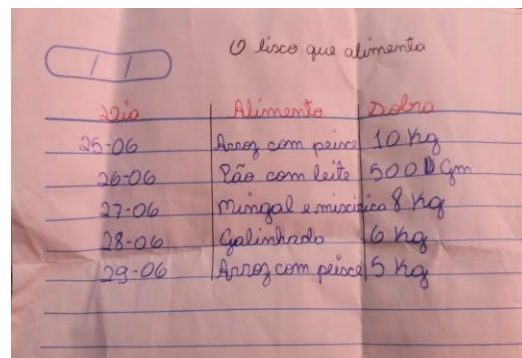 O lisco que alimenta
Dia Alimento Dobra
25-06 Arroz com peixe 10 Kg
26-06 Pão com leite 500 Gm
27-06 Mingal e 8 Kg
28-06 Galinhada 6 Kg
29-06 Arroz com peixe 5 Kg